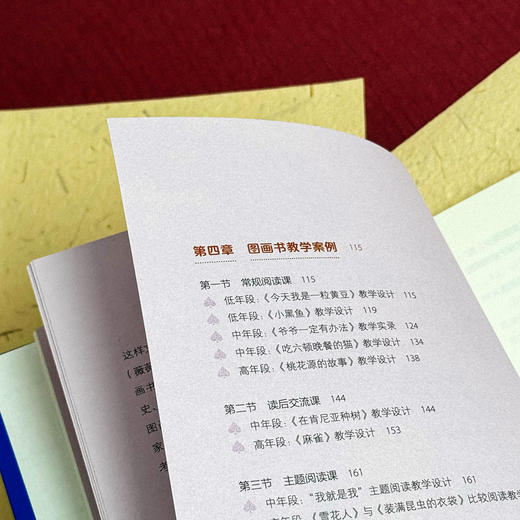 第四章 图画书教学案例 115
第一节 常规阅读课 115
低年段:《今天我是一粒黄豆》教学设计 115
低年段:《小黑鱼》教学设计 119
中年段:《爷爷一定有办法》教学实录 124
中年段:《吃六顿晚餐的猫》教学设计 134
高年段:《桃花源的故事》教学设计 138
第二节 读后交流课 144
中年段:《在肯尼亚种树》教学设计 144
高年段:《麻雀》教学设计 153
第三节 主题阅读课 161
中年段:“我就是我”主题阅读教学设计 161
高年段:《雪花人》与《装满昆虫的衣袋》比较阅读教学
这样
(薇薇
画书
史、
图
家
考